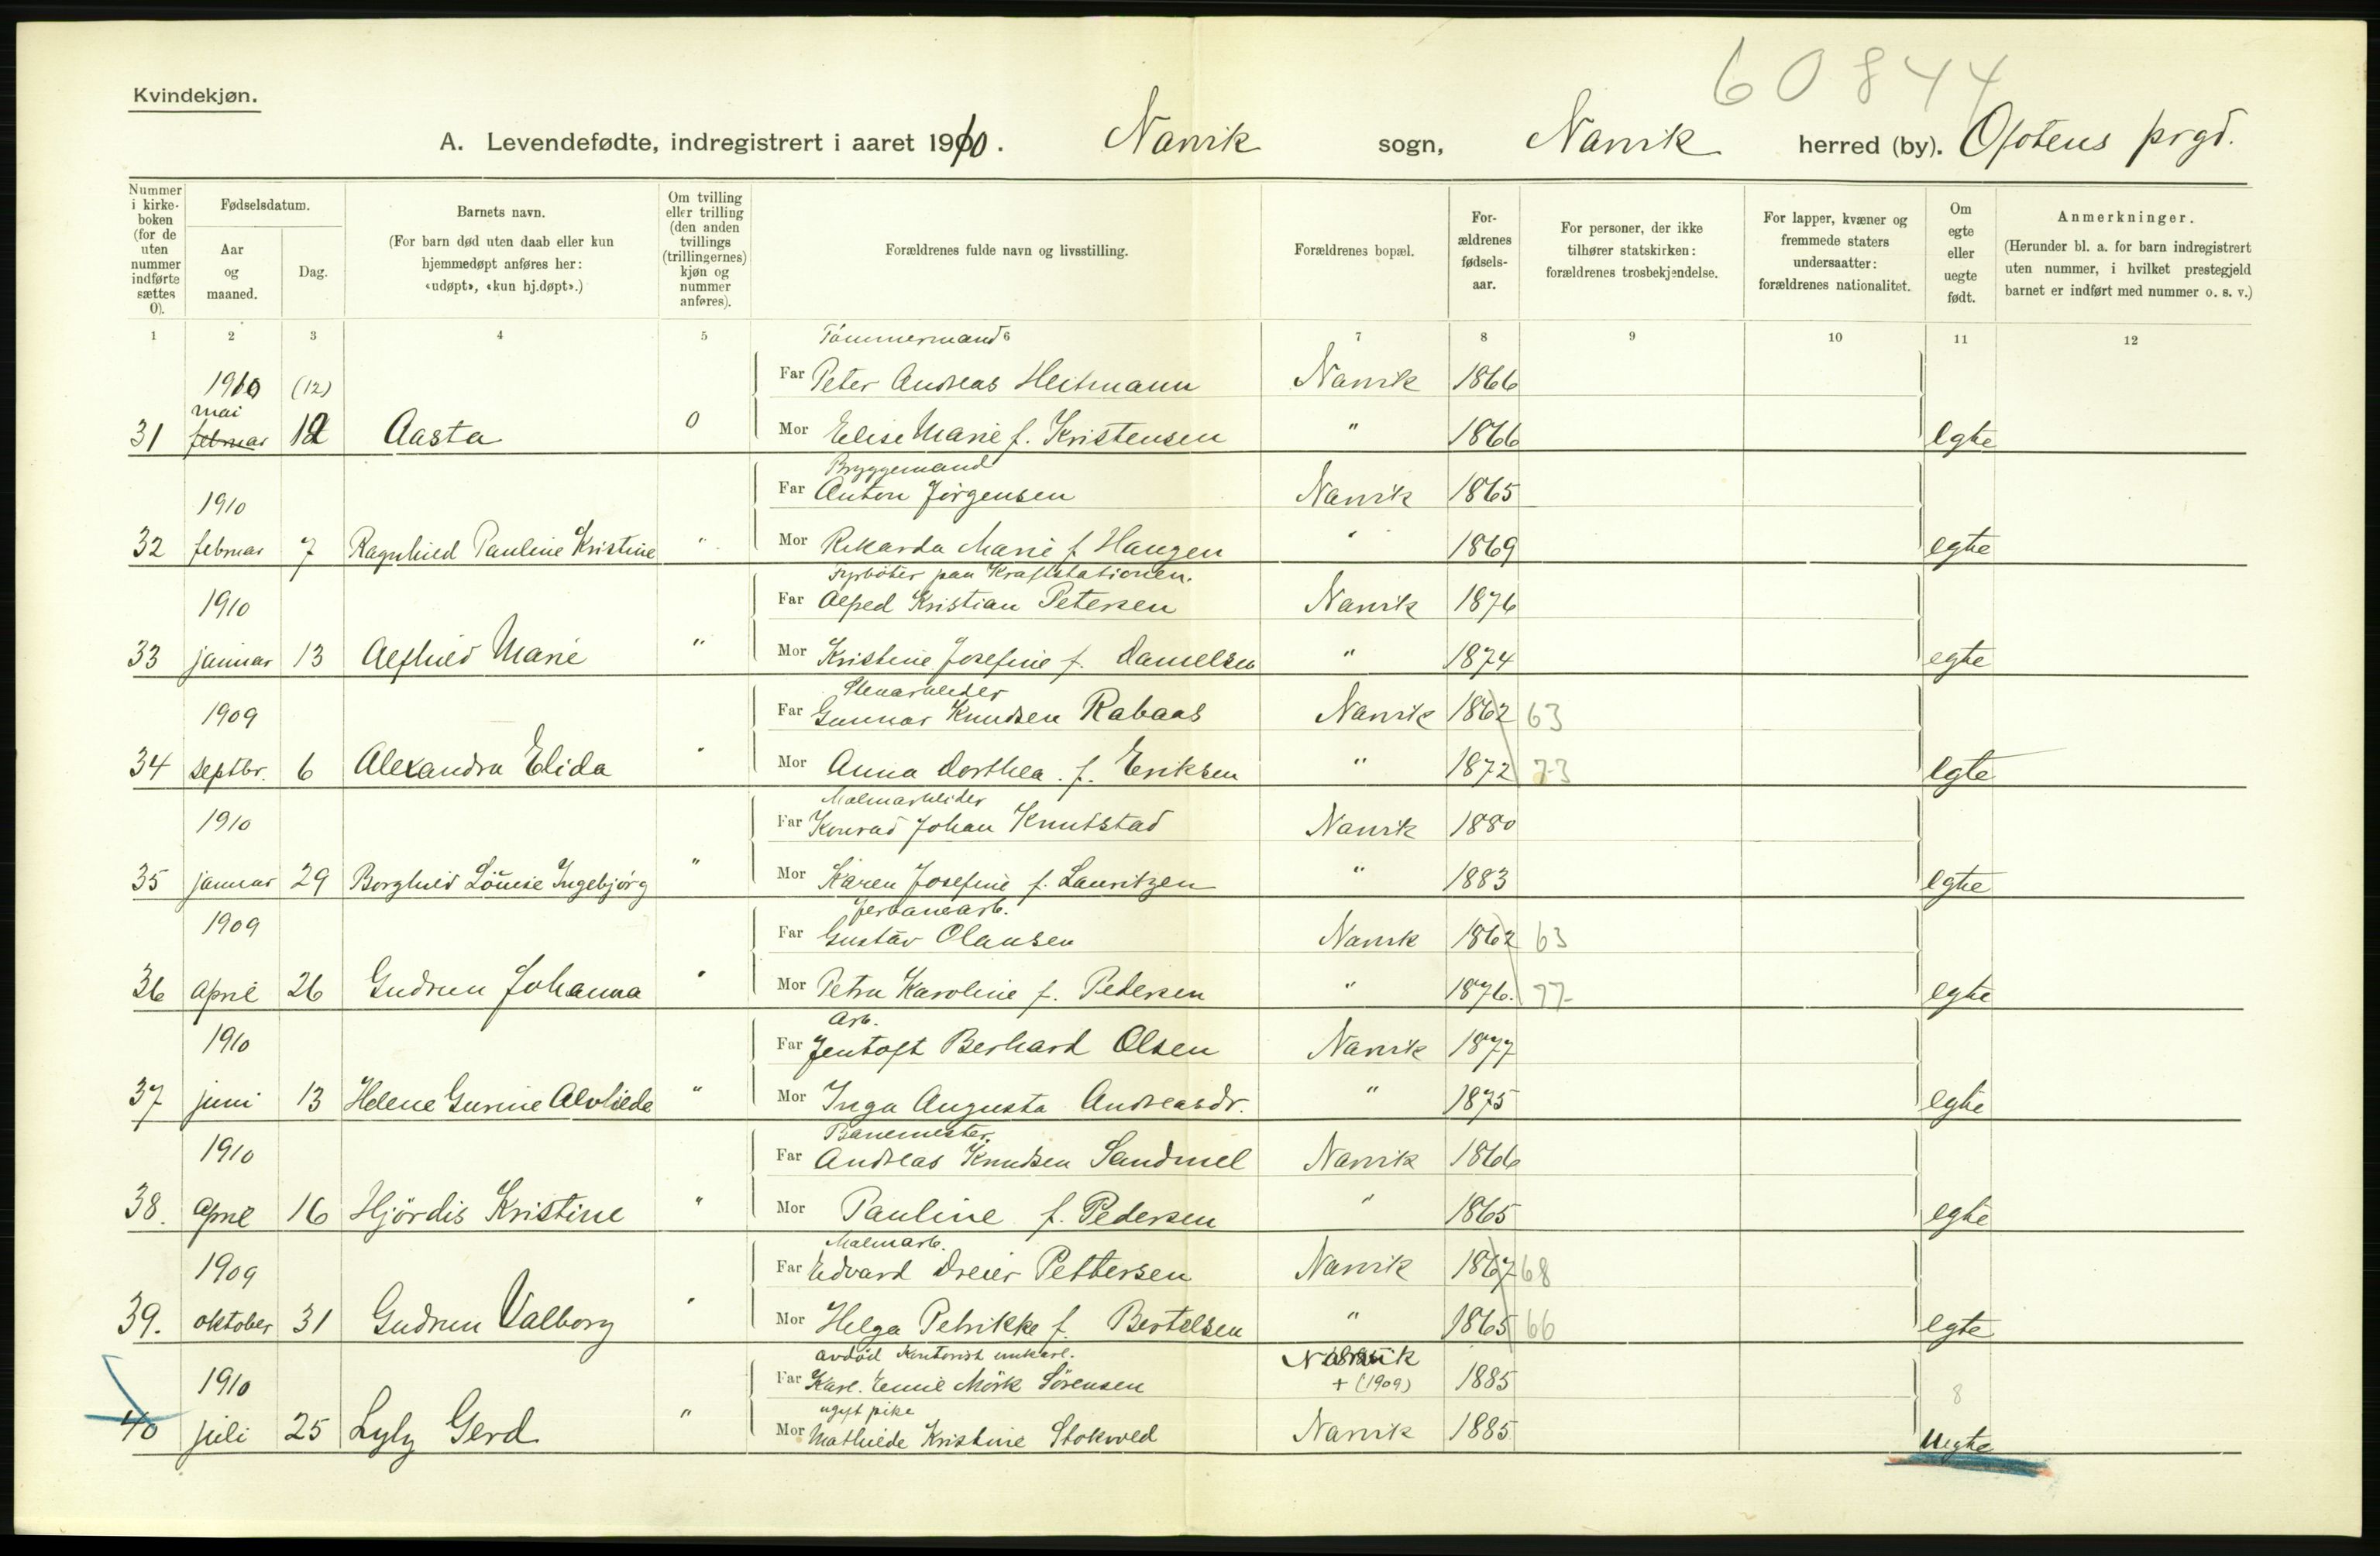 60844
Kvindekjøn.
A. Levendefødte, indregistrert i aaret 1910. Narvik sogn, Narvik herred (by). Ofotens prgd.
Nummer i kirkeboken (for de uten nummer indførte sættes 0).
Fødselsdatum.
Aar og maaned.
Dag.
Barnets navn.
(For barn død uten daab eller kun hjemmedøpt anføres her: «udøpt», «kun hj.døpt».)
Om tvilling eller trilling (den anden tvillings (trillingernes) kjøn og nummer anføres).
Forældrenes fulde navn og livsstilling.
Forældrenes bopæl.
Forældrenes fødselsaar.
For personer, der ikke tilhører statskirken: forældrenes trosbekjendelse.
For lapper, kvæner og fremmede staters undersaatter: forældrenes nationalitet.
Om egte eller uegte født.
Anmerkninger.
(Herunder bl. a. for barn indregistrert uten nummer, i hvilket prestegjeld barnet er indført med nummer o. s. v.)
1 2 3 4 5 6 7 8 9 10 11 12
Tömmermand
1910 (12) Far Peter Andreas Heitmann Narvik 1866
mai
31 februar 12 Aasta 0 Mor Elise Marie f. Kristensen " 1866 egte
Bryggemand
1910 Far Anton Jörgensen Narvik 1865
32 februar 7 Ragnhild Pauline Kristine " Mor Rikarda Marie f. Haugen " 1869 egte
Fyrböter paa Kraftstationen.
1910 Far Alfred Kristian Petersen Narvik 1876
33 januar 13 Alfhild Marie " Mor Kristine Josefine f. Danielsen " 1874 egte
Stenarbeider
1909 Far Gunnar Knudsen Rabaas Narvik 1862 63
34 septbr. 6 Alexandra Elida " Mor Anna Dorthea f. Eriksen " 1872 73 egte
Malmarbeider
1910 Far Konrad Johan Knutstad Narvik 1880
35 januar 29 Borghild Louise Ingebjörg " Mor Karen Josefine f. Lauritzen " 1883 egte
Jerbanearb.
1909 Far Gustav Olausen Narvik 1862 63
36 april 26 Gudrun Johanna " Mor Petra Karoline f. Pedersen " 1876. 77 egte
Arb.
1910 Far Jentoft Berhard Olsen Narvik 1877
37 juni 13 Helene Gurine Alvhilde " Mor Inga Augusta Andreasdr. " 1875 egte
Banemester.
1910 Far Andreas Knudsen Sandmel Narvik 1866
38. april 16 Hjördis Kristine " Mor Pauline f. Pedersen " 1865 egte
Malmarb.
1909 Far Edvard Dreier Pettersen Narvik 1867 68
39. oktober 31 Gudrun Valborg " Mor Helga Petrikke f. Bertelsen " 1865 66 egte
avdöd Kontorist unkarl. Narvik
1910 Far Karl Emil Mörk Sörensen + (1909) 1885 8
ugift pike
40 juli 25 Lyly Gerd " Mor Mathilde Kristine Stokvold Narvik 1885 Uegte